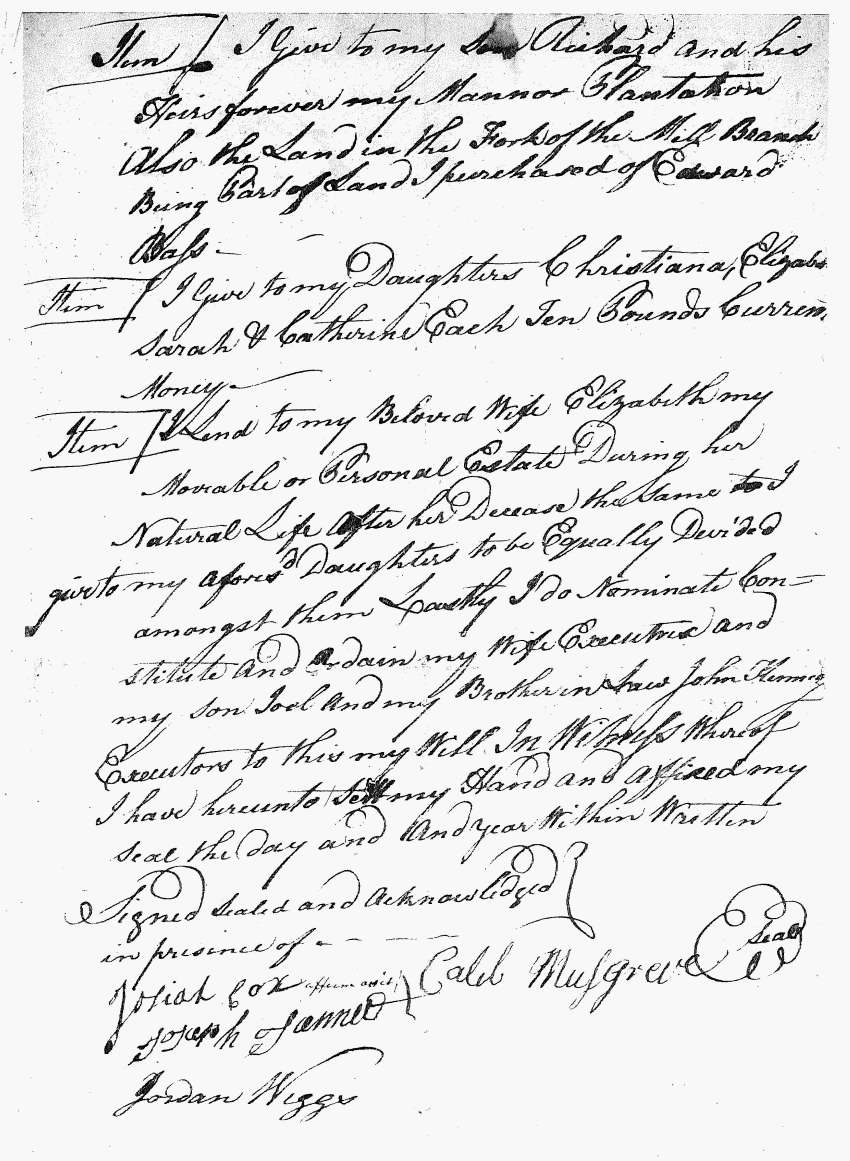 Item I Give to my Son Richard and his
Heirs forever my Mannor Plantation
Also the Land in the Fork of the Mill Branch
Being Part of Land I purchased of Edward
Bass -
Item I Give to my Daughters Christiana, Elizab
Sarah & Catherine Each Ten Pounds Curren
Money -
Item I Lend to my Beloved Wife Elizabeth my
Moveable or Personal Estate During her
Natural Life After her Decease the Same I
give to my afores'd Daughters to be Equally Devided
amongst them Lastly I do Nominate Con=
stitute And Ordain my Wife Executrix and
my son Joel And my Brother in Law John
Executors to this my Will In Witness Whereof
I have hereunto Sett my Hand and Affixed my
seal the day and And year Within Written
Signed Sealed and Acknowledged
in presence of - - - -
Josiah Cox Caleb Musgrave Seal
Joseph
Jordan Wiggs